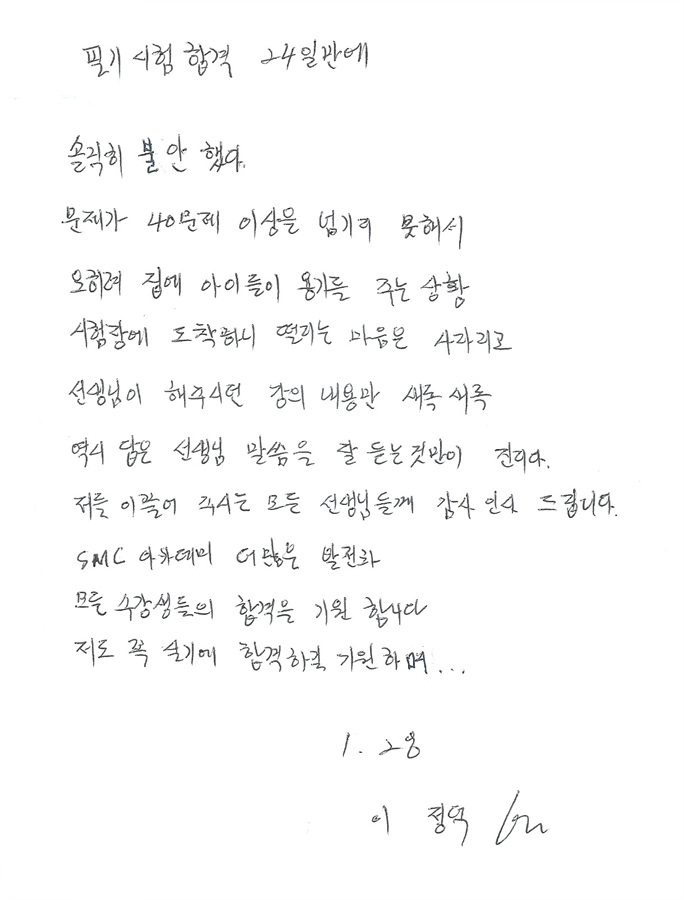 필기 시험 합격 24일만에
솔직히 불안 했다.
문제가 40문제 이상을 넘기지 못해서
오히려 집에 아이들이 용기를 주는 상황
시험장에 도착하니 떨리는 마음은 사라지고
선생님이 해주시던 강의 내용만 새록새록
역시 답은 선생님 말씀을 잘 듣는것만이 진리다.
저를 이끌어 주시는 모든 선생님들께 감사 인사 드립니다.
SMC 아카데미 더많은 발전과
모든 수강생들의 합격을 기원 합니다
저도 꼭 실기에 합격하길 기원하며...
이 정덕